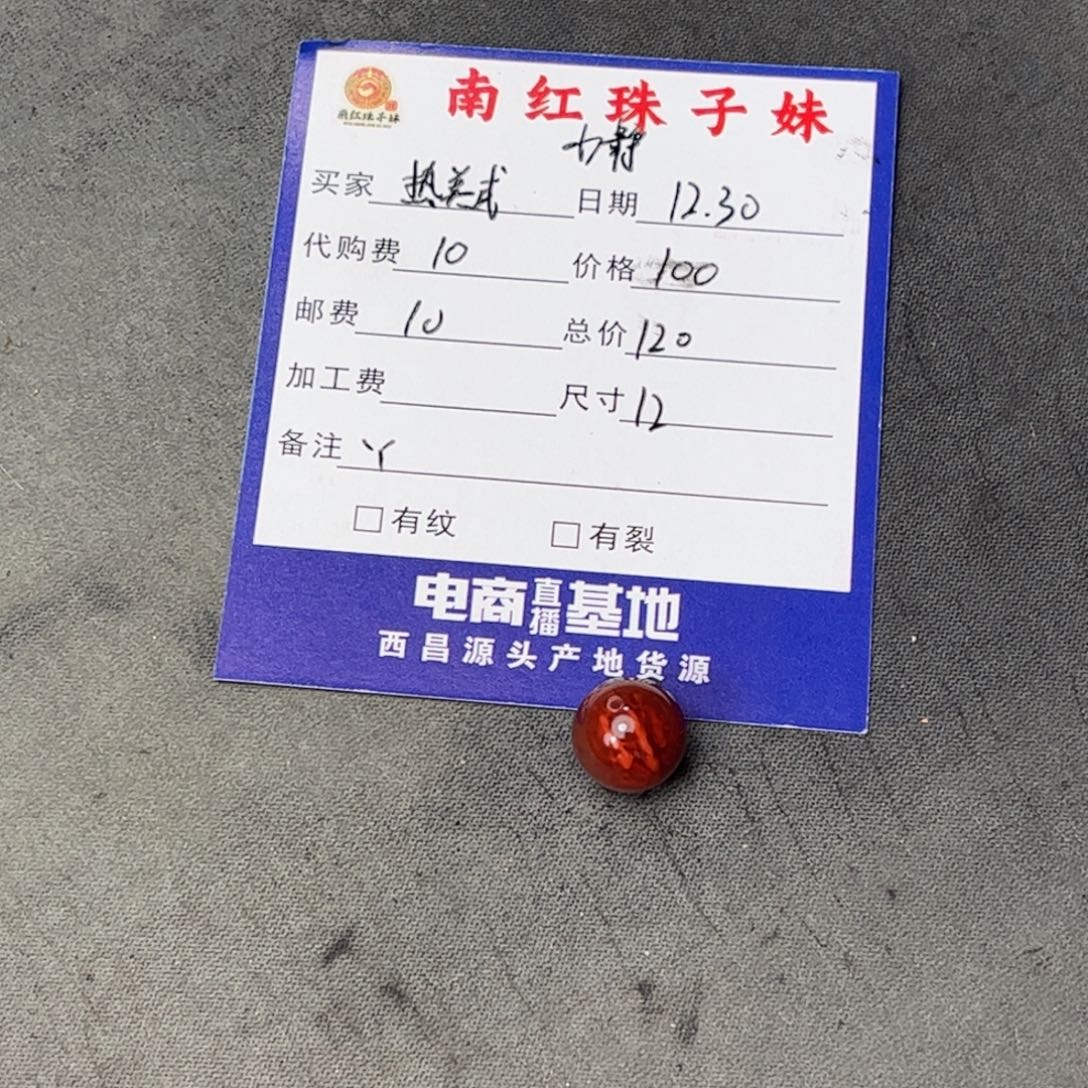 南红珠子妹
南红珠子妹
买家 热美式 日期 12.30
代购费 10 价格 100
邮费 10 总价 120
加工费 尺寸 12
备注 丫
□有纹 □有裂
电商直播基地
西昌源头产地货源